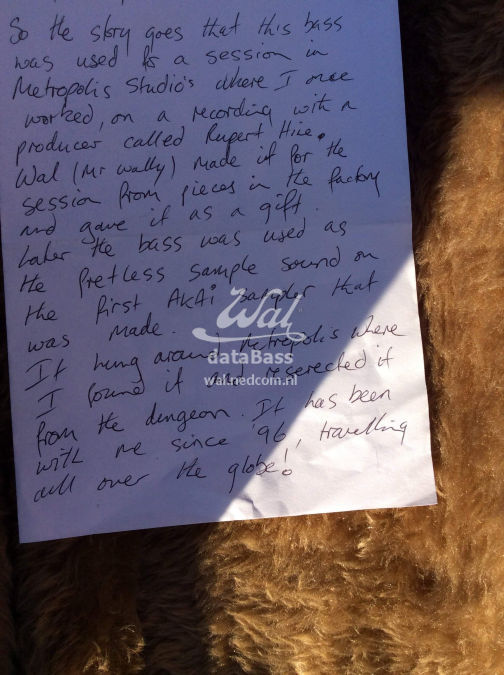 So the story goes that this bass
was used for a session in
Metropolis Studio's where I once
worked, on a recording with a
producer called Rupert Hine.
Wal (Mr Wally) made it for the
session from pieces in the factory
and gave it as a gift.
Later the bass was used as
the fretless sample sound on
the first AKAi sampler that
was made.
Wal
dataBass
wal.nedcom.nl
It hung around Metropolis where
I found it and reserected it
from the dungeon. It has been
with me since '96, travelling
all over the globe!